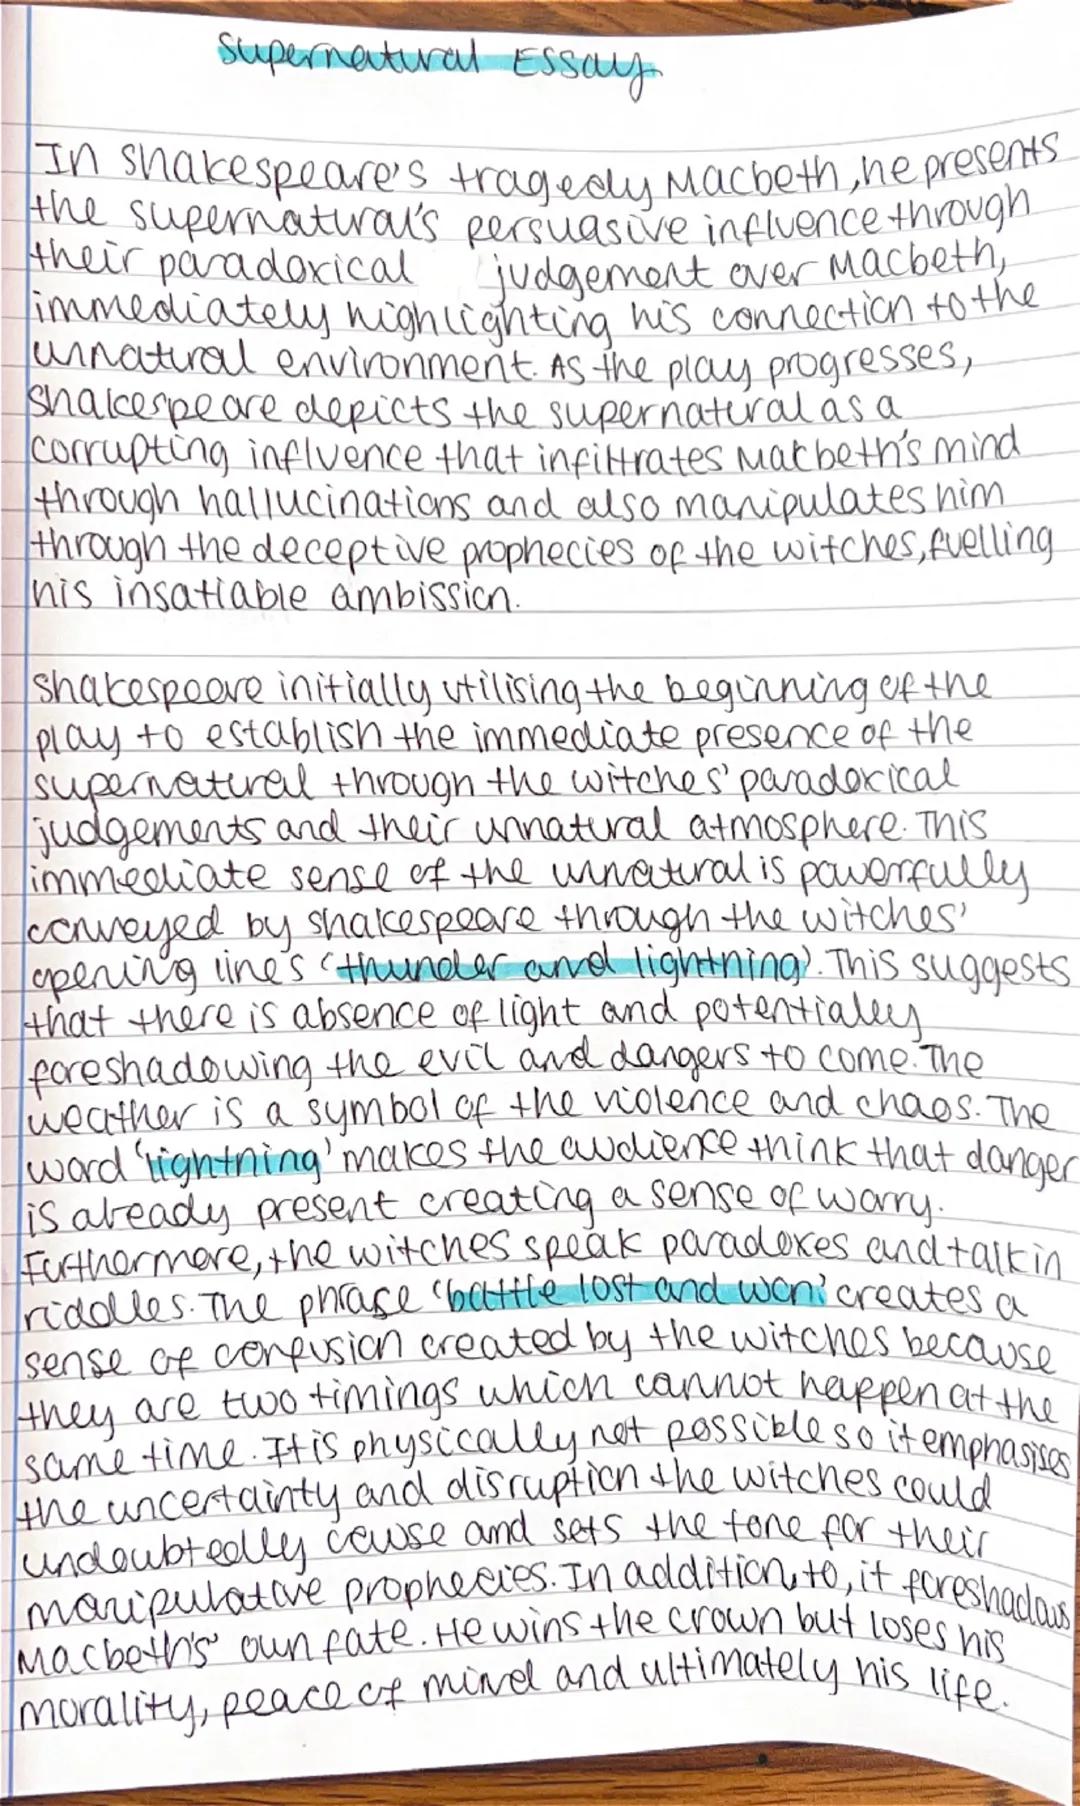 Supernatural Essay
In Shakespeare's tragedy Macbeth, he presents
the supernatural's persuasive influence through
their paradoxical judgement over Macbeth,
immediately highlighting his connection to the
unnatural environment. As the play progresses,
Shakespeare depicts the supernatural as a
corrupting influence that infiltrates Macbeth's mind
through hallucinations and also manipulates him
through the deceptive prophecies of the witches, fuelling
his insatiable ambission.
Shakespeare initially utilising the beginning of the
play to establish the immediate presence of the
supernatural through the witches' paradoxical
judgements and their unnatural atmosphere. This
immediate sense of the unnatural is powerfully
conveyed by Shakespeare through the witches'
opening lines 'thunder and lightning'. This suggests
that there is absence of light and potentialey
foreshadowing the evil and dangers to come. The
weather is a symbol of the violence and chaos. The
word 'lightning' makes the audience think that danger
is already present creating a sense of worry.
Furthermore, the witches speak paradoxes and talk in
riddles. The phrase 'battle lost and won' creates a
sense of confusion created by the witches because
they are two timings which cannot happen at the
same time. It is physically not possible so it emphasises
the uncertainty and disruption the witches could
undoubtedly cause and sets the tone for their
manipulative prophecies. In addition, to, it foreshadows
Macbeth's' own fate. He wins the crown but loses his
morality, peace of mind and ultimately his life.